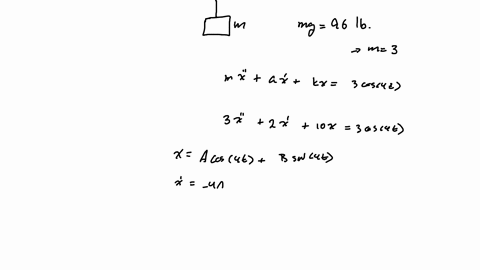 m mg = 96 lb.
→ m = 3
m x'' + a x' + kx = 3 cos(4t)
3x'' + 2x' + 10x = 3 cos(4t)
x = A cos(4t) + B sin(4t)
x' = -4A